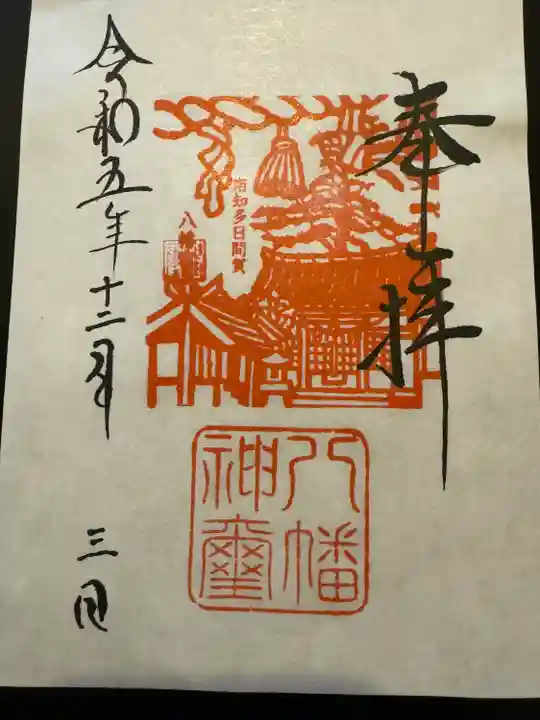 奉拝
南知多日間賀
八
八幡
神璽
令和五年十二月
三日